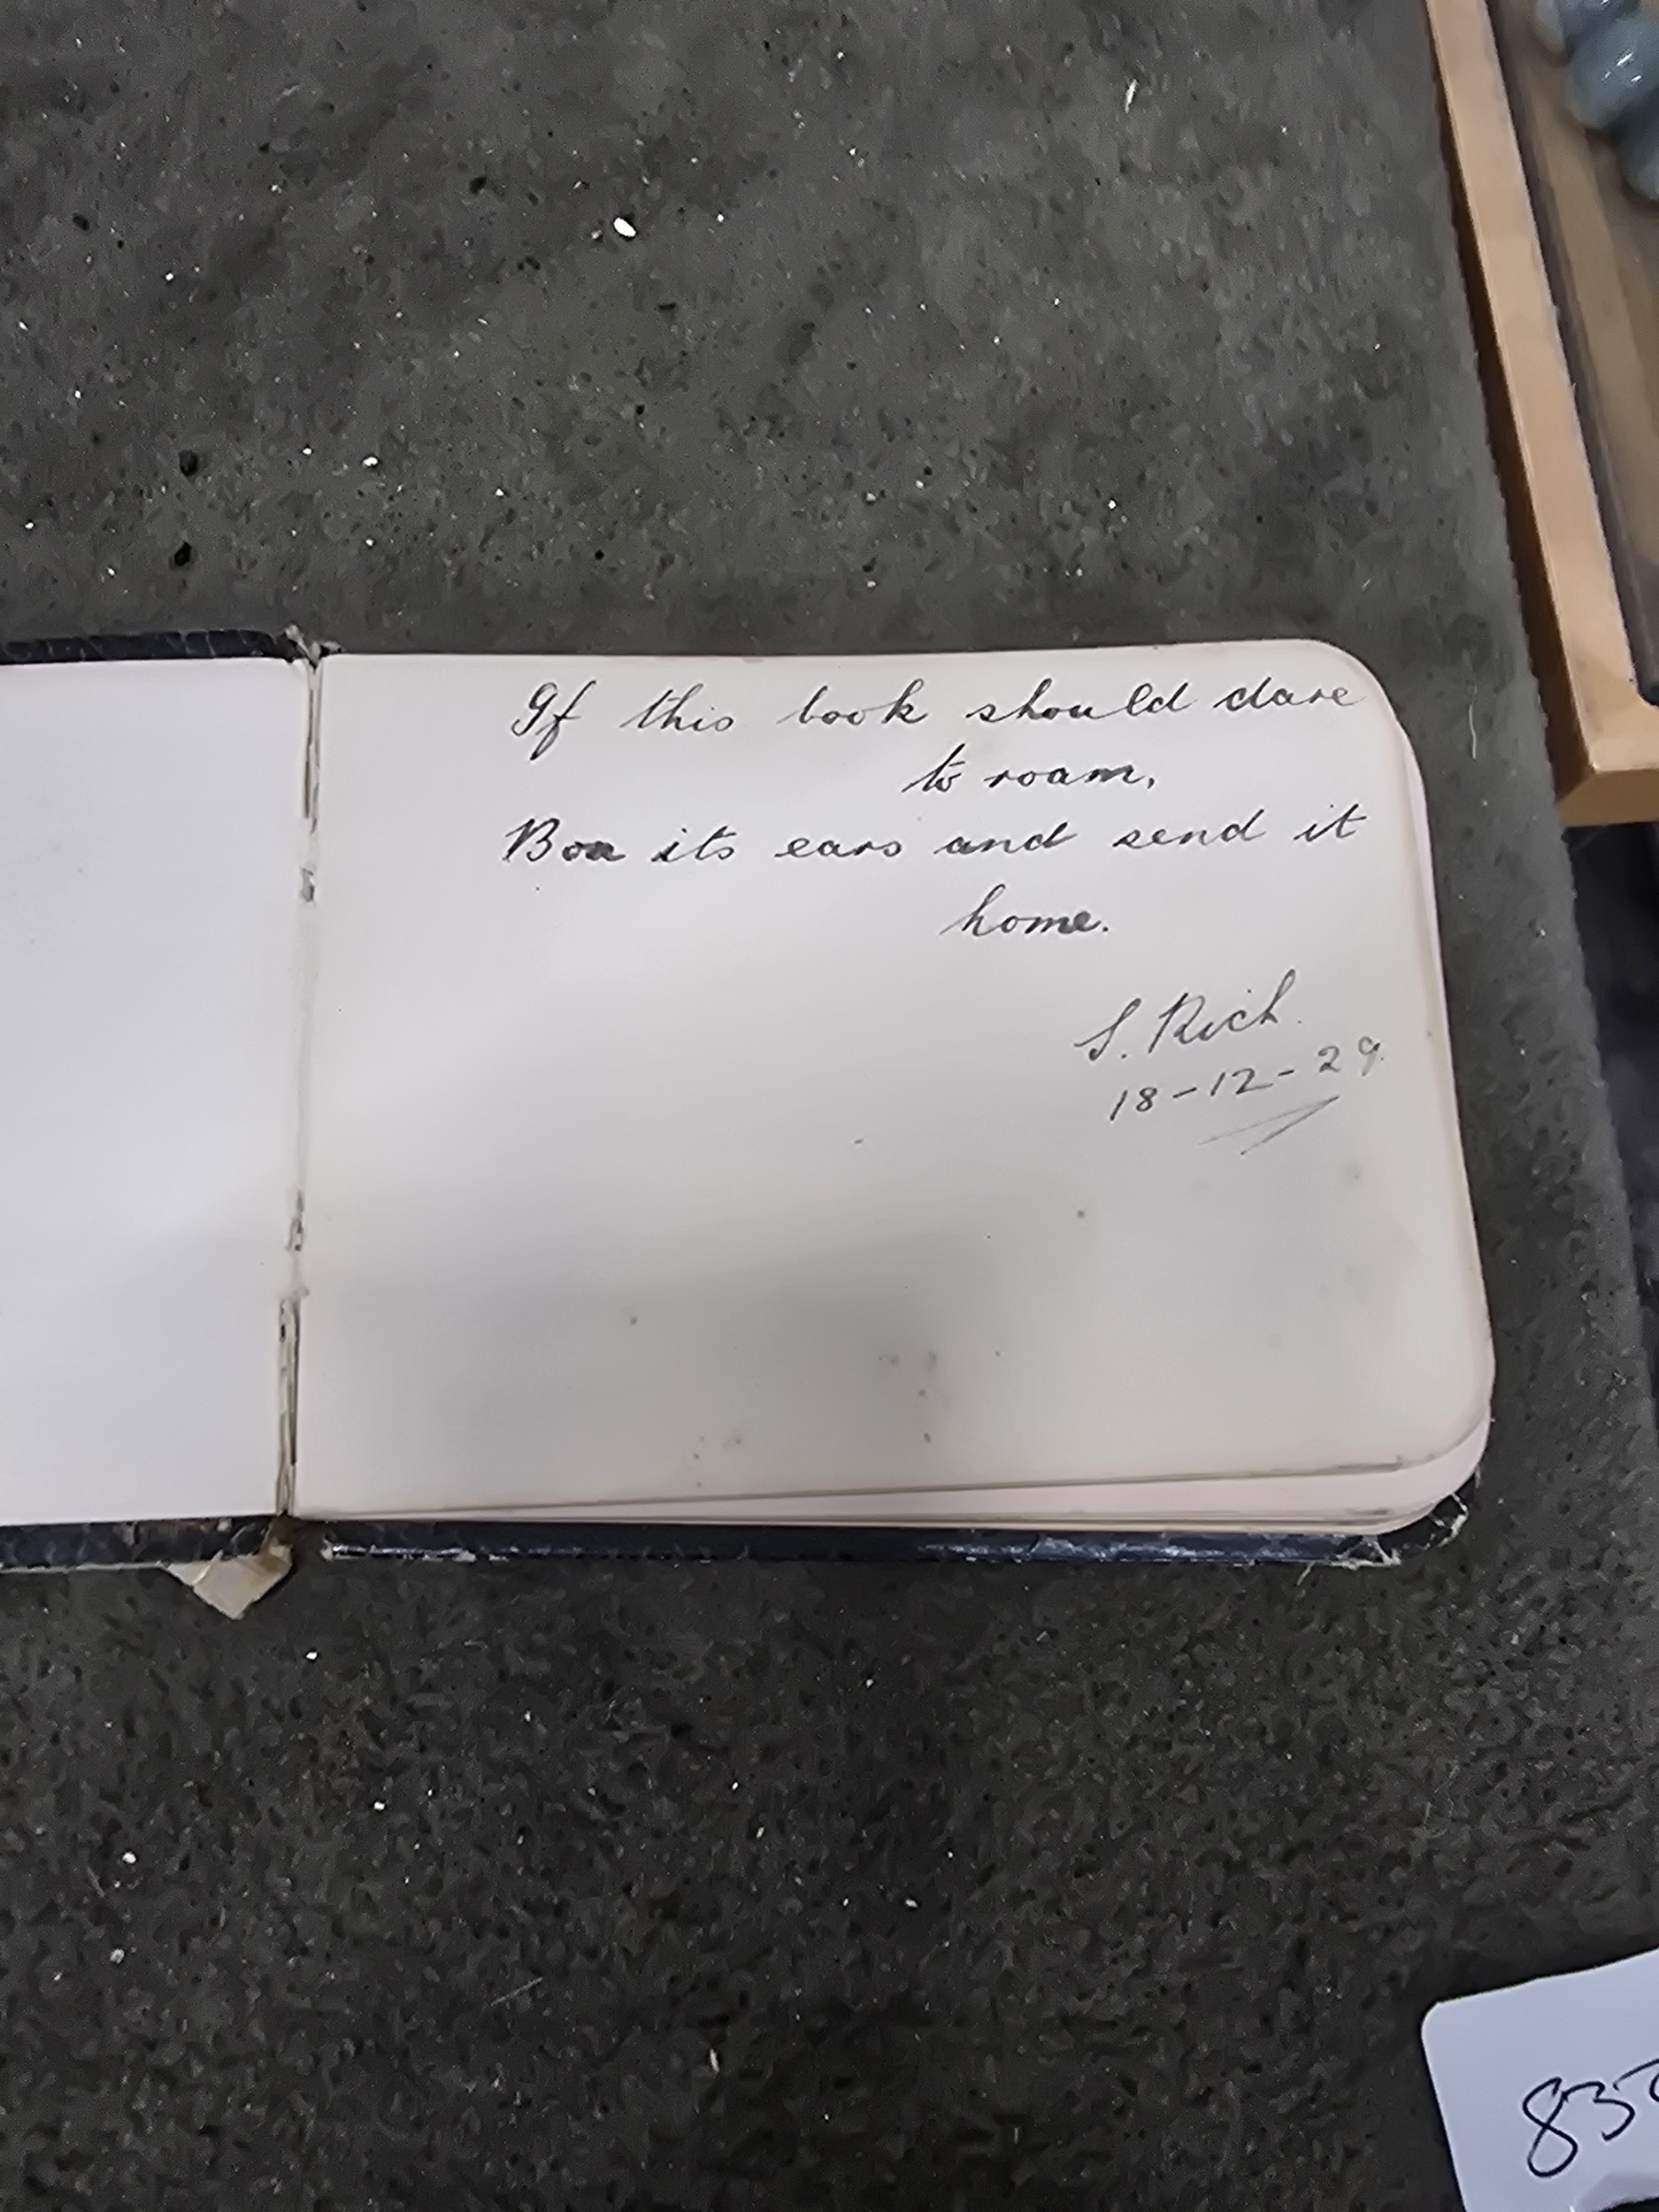 If this book should dare
to roam,
Box its ears and send it
home.
S. Rich.
18-12-29